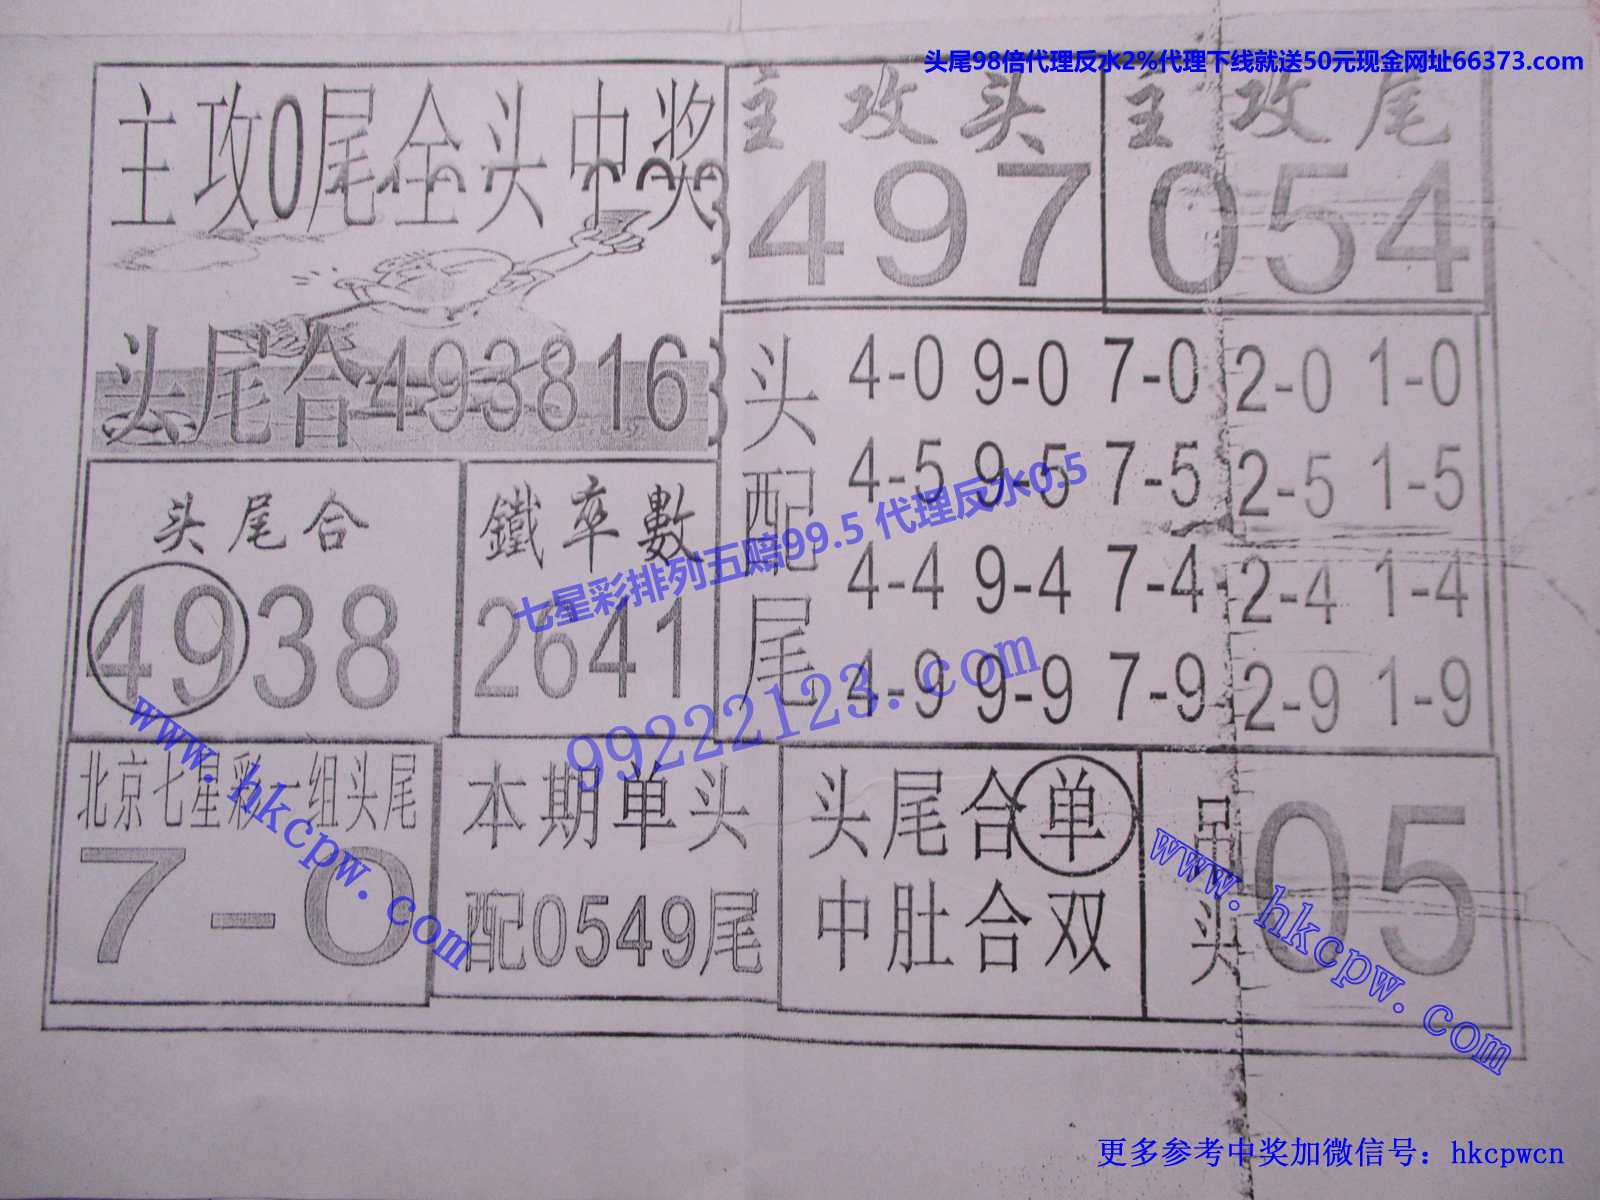 头尾98倍代理反水2%代理下线就送50元现金网址66373.com
主攻0尾全头中奖
头尾合493816
主攻头
497
主攻尾
054
头配尾
4-0 9-0 7-0 2-0 1-0
4-5 9-5 7-5 2-5 1-5
4-4 9-4 7-4 2-4 1-4
4-9 9-9 7-9 2-9 1-9
头尾合
4938
鐵率數
2641
七星彩排列五赔99.5 代理反水0.5
99222123.com
北京七星彩一组头尾
7-0
www.hkcpw.com
本期单头
配0549尾
头尾合单
中肚合双
吊头
05
www.hkcpw.com
更多参考中奖加微信号：hkcpwcn